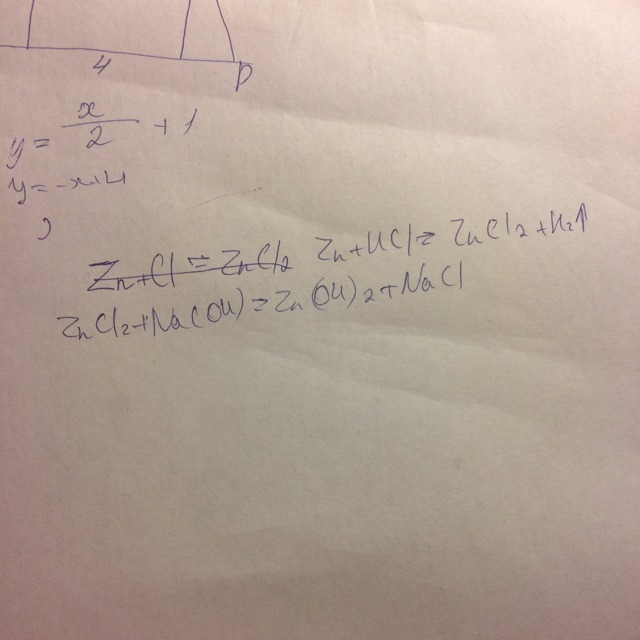 4
D
y = x/2 + 1
y = -x+4
Zn+Cl = ZnCl2 Zn+HCl= ZnCl2+H2↑
ZnCl2+Na(OH)=Zn(OH)2+NaCl